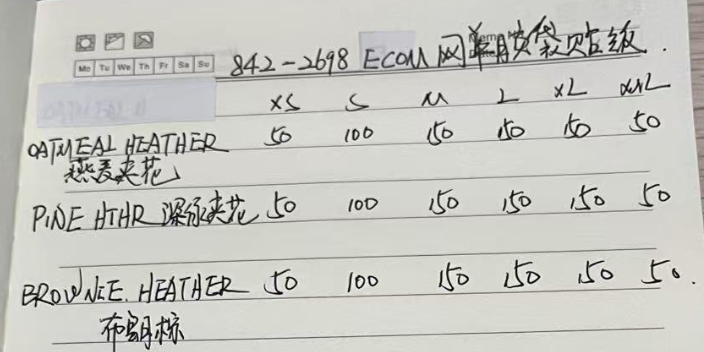 Mo Tu We Th Fr Sa Su
842-2698 ECOM 网单胶袋贴纸.
XS S M L XL XXL
OATMEAL HEATHER 50 100 150 150 150 50
燕麦夹花
PINE HTHR 深绿夹花 50 100 150 150 150 50
BROWNEE. HEATHER 50 100 150 150 150 50.